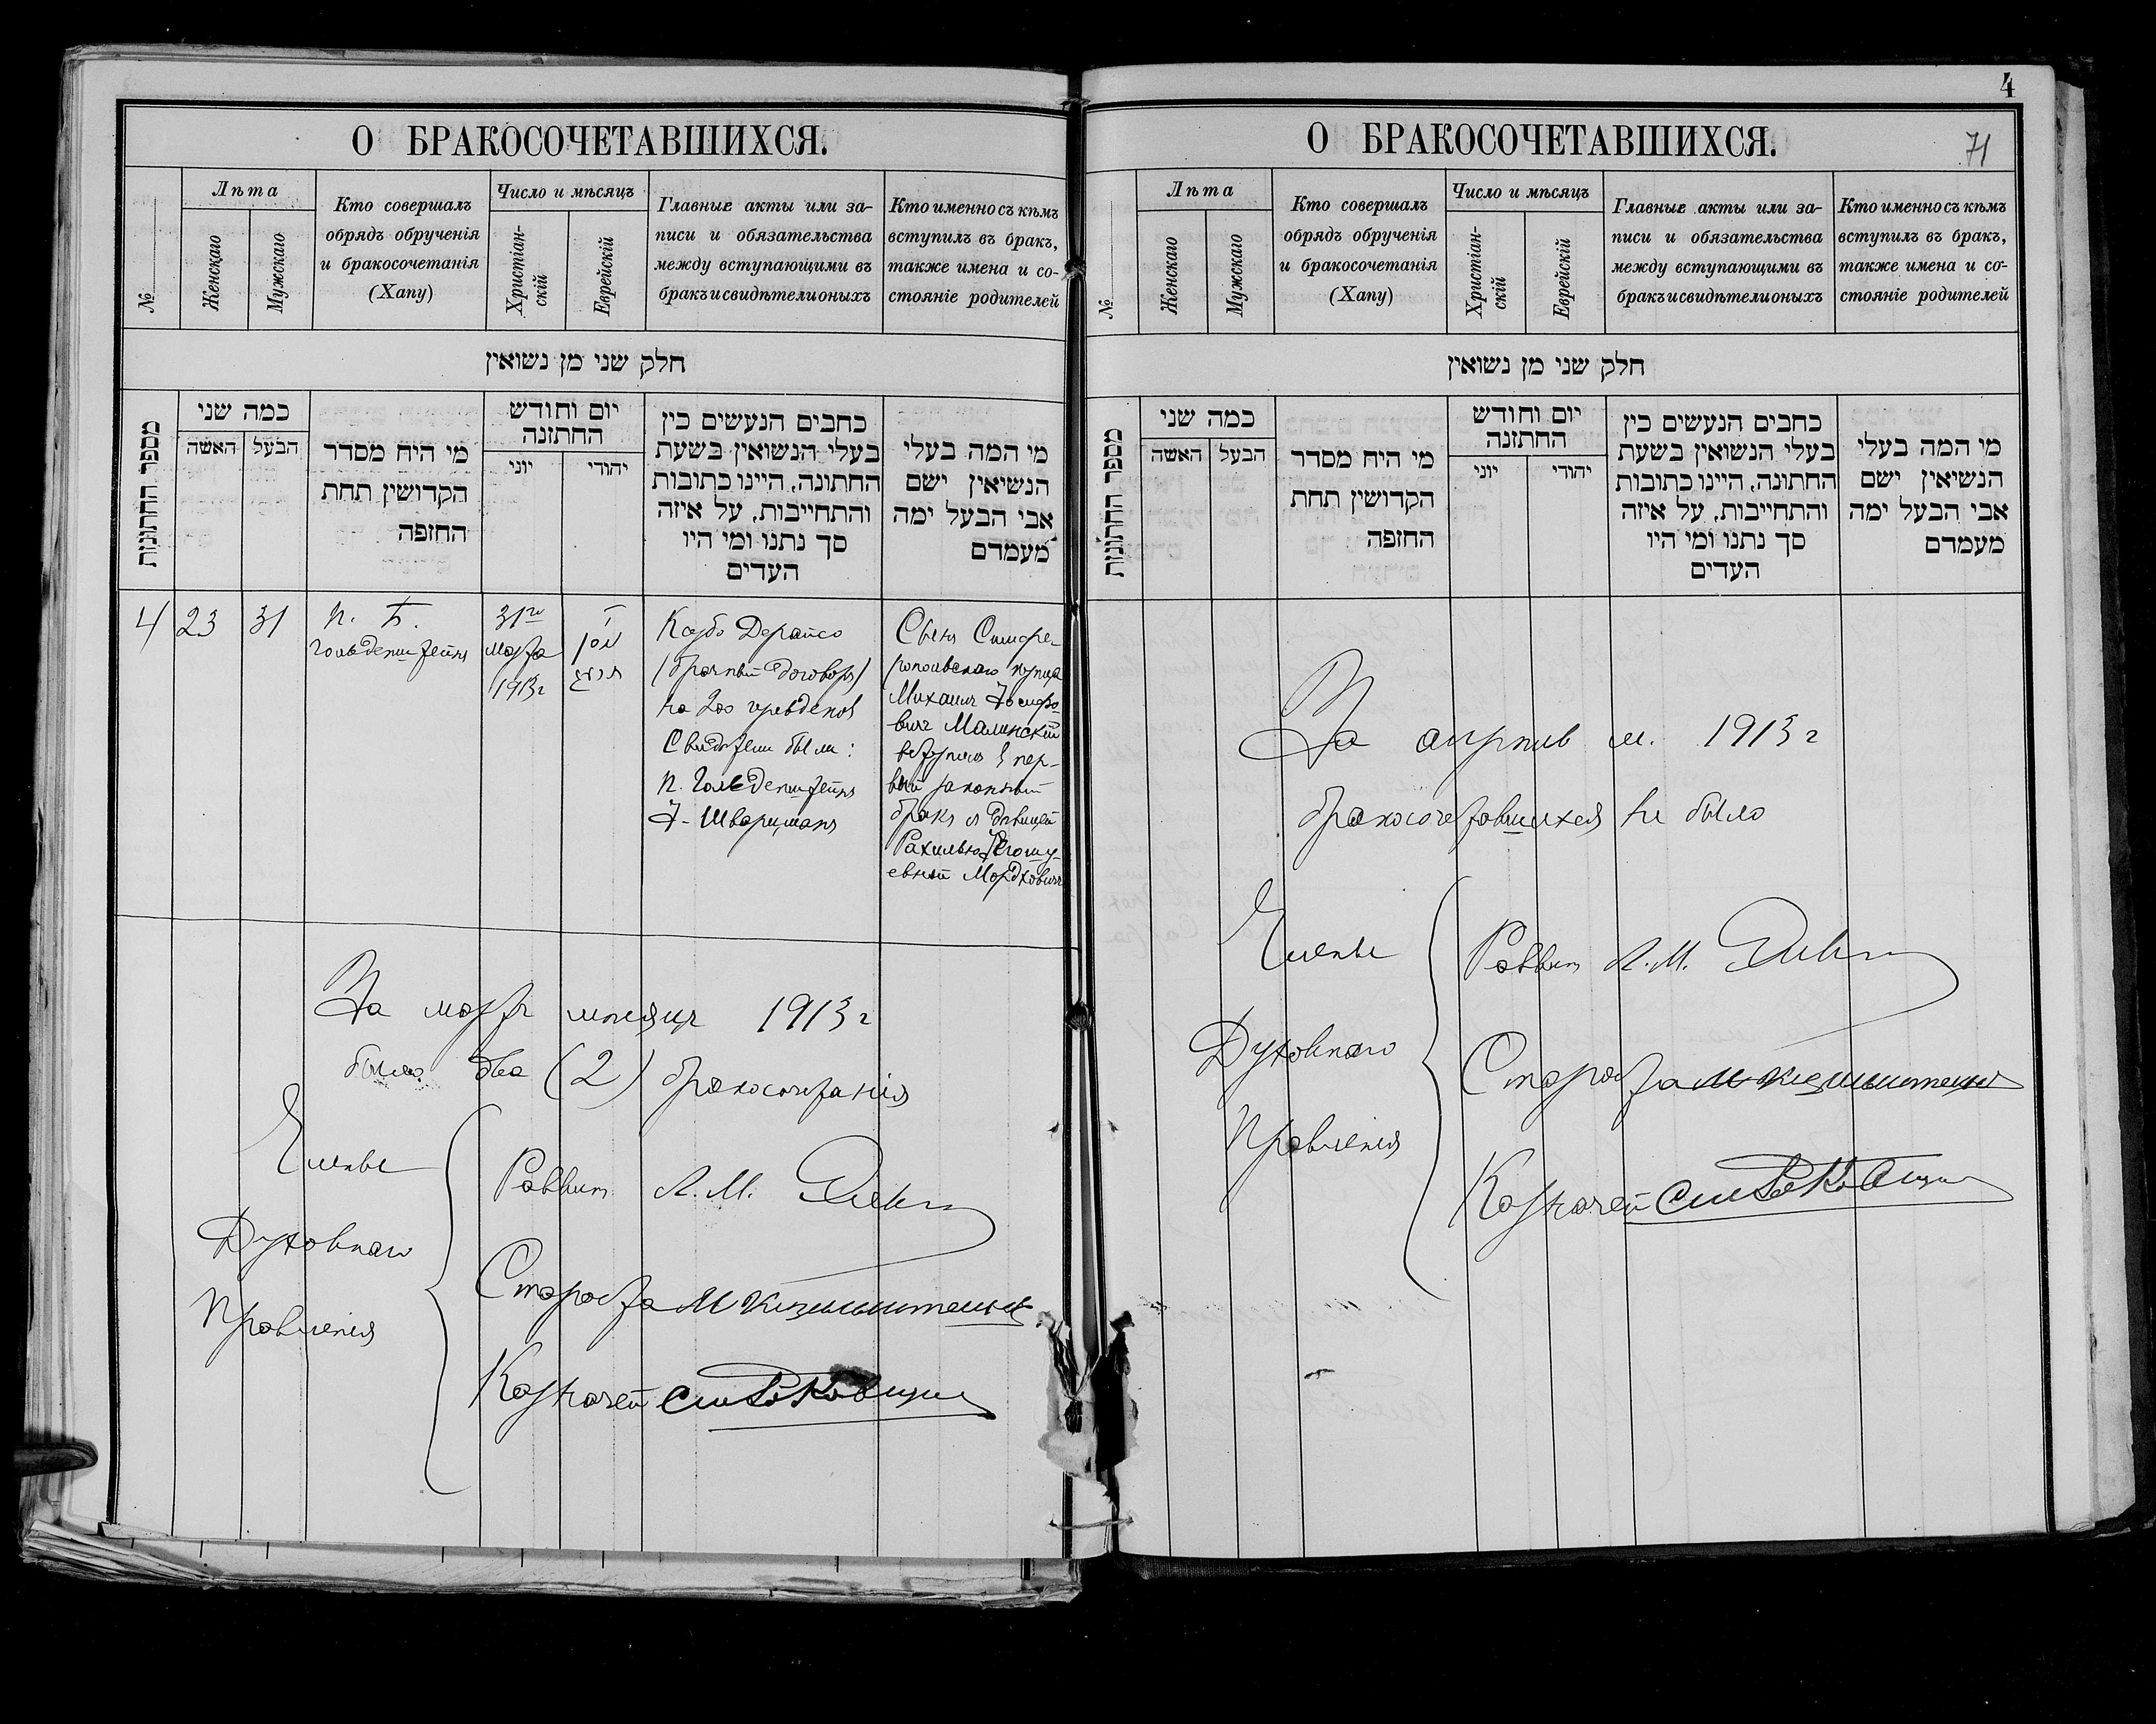 О БРАКОСОЧЕТАВШИХСЯ.
№
Лѣта
Женскаго
Мужскаго
Кто совершалъ
обрядъ обрученія
и бракосочетанія
(Хапу)
Число и мѣсяцъ
Христіан-
скій
Еврейскій
Главные акты или за-
писи и обязательства
между вступающими въ
бракъ и свидѣтели оныхъ
Кто именно съ кѣмъ
вступилъ въ бракъ,
также имена и со-
стояніе родителей
חלק שני מן נשואין
מספר החתונות
כמה שני
האשה
הבעל
מי היח מסדר
הקדושין תחת
החזפה
יום וחודש
החתזנה
יוני
יהודי
כחבים הנעשים כין
בעלי הנשואין בשעת
החתונה, היינו כתובות
והתחייבות, על איזה
סך נתנו ומי היו
העדים
מי המה בעלי
הנשיאין ישם
אבי הבעל ימה
מעמדם
4
23
31
П. Б.
Гольденштейнъ
31го
марта
1913 г
ניסן
תרעג
(брачный договоръ)
на 200 рублей
Свидѣтели были:
П. Гольденштейнъ
І. Шварцманъ
Сынъ Симфе-
ропольскаго купца
Михаилъ Іосифо-
вичъ Малинскій
вступилъ въ пер-
вый законный
бракъ съ дѣвицей
Рахилью Іегошу-
евной Мордковичъ
За мартъ мѣсяцъ 1913 г
было два (2) бракосочетанія
Члены
Духовнаго
Правленія
Раввинъ Л. М.
Староста М
Казначей
4
71
О БРАКОСОЧЕТАВШИХСЯ.
№
Лѣта
Женскаго
Мужскаго
Кто совершалъ
обрядъ обрученія
и бракосочетанія
(Хапу)
Число и мѣсяцъ
Христіан-
скій
Еврейскій
Главные акты или за-
писи и обязательства
между вступающими въ
бракъ и свидѣтели оныхъ
Кто именно съ кѣмъ
вступилъ въ бракъ,
также имена и со-
стояніе родителей
חלק שני מן נשואין
מספר החתונות
כמה שני
האשה
הבעל
מי היח מסדר
הקדושין תחת
החזפה
יום וחודש
החתזנה
יוני
יהודי
כחבים הנעשים כין
בעלי הנשואין בשעת
החתונה, היינו כתובות
והתחייבות, על איזה
סך נתנו ומי היו
העדים
מי המה בעלי
הנשיאין ישם
אבי הבעל ימה
מעמדם
За апрѣль м. 1913 г
бракосочетавшихся не было
Члены
Духовнаго
Правленія
Раввинъ Л. М.
Староста М
Казначей